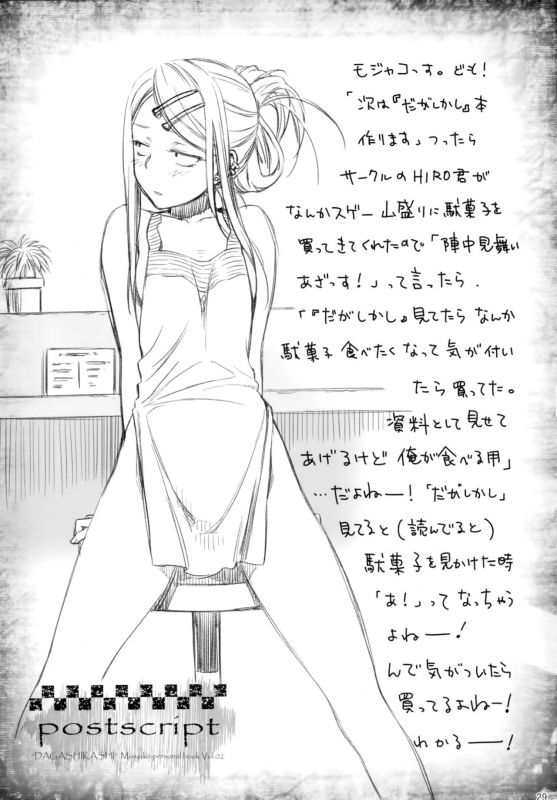 モジャコっす。ども!
「次は『だがしかし』本
作ります」つったら
サークルのHIRO君が
なんかスゲー山盛りに駄菓子を
買ってきてくれたので「陣中見舞い
あざっす!」って言ったら、
「『だがしかし』見てたらなんか
駄菓子食べたくなって気が付い
たら買ってた。
資料として見せて
あげるけど俺が食べる用」
…だよねー!「だがしかし」
見てると(読んでると)
駄菓子を見かけた時
「あ!」ってなっちゃう
よねー!
んで気がついたら
買ってるよねー!
わかるー!
postscript
"DAGASHIKASHI" Mojyako personal book Vol.02
29